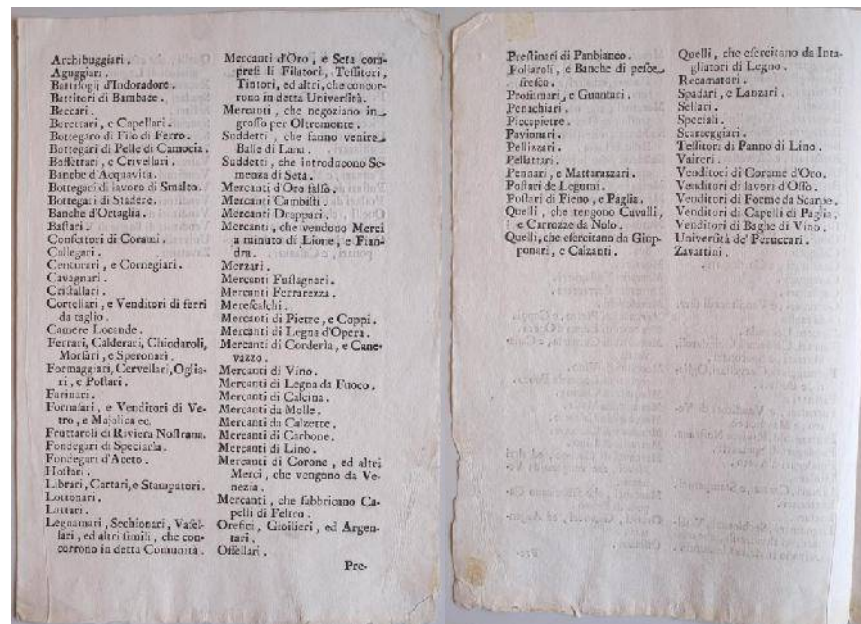 Archibuggiari.
Aguggiari.
Battifogli d'Indoradore.
Battitori di Bambace.
Beccari.
Berettari, e Capellari.
Bottegaro di Filo di Ferro.
Bottegari di Pelle di Camocia.
Baslettari, e Crivellari.
Banche d'Acquavita.
Bottegari di lavoro di Smalto.
Bottegari di Stadere.
Banche d'Octaglia.
Bastari.
Confettori di Corami.
Callegari.
Centurari, e Cornegiari.
Cavagnari.
Cristallari.
Cortellari, e Venditori di ferri
da taglio.
Camere Locande.
Ferrari, Calderari, Chiodaroli,
Morsari, e Speronari.
Formaggiari, Cervellari, Oglia-
ri, e Postari.
Farinari.
Fornasari, e Venditori di Ve-
tro, e Majolica ec.
Fruttaroli di Riviera Nostrana.
Fondegari di Speciaria.
Fondegari d'Aceto.
Hostari.
Librari, Cartari, e Stampatori.
Lottonari.
Lattari.
Legnamari, Sechionari, Vasel-
lari, ed altri simili, che con-
corrono in detta Comunità.
Mercanti d'Oro, e Seta com-
presi li Filatori, Tessitori,
Tintori, ed altri, che concor-
rono in detta Università.
Mercanti, che negoziano in
grosso per Oltremonte.
Suddetti, che fanno venire
Balle di Lana.
Suddetti, che introducono Se-
menza di Seta.
Mercanti d'Oro falso.
Mercanti Cambisti.
Mercanti Drappari.
Mercanti, che vendono Merci
a minuto di Lione, e Fian-
dra.
Merzari.
Mercanti Fustagnari.
Mercanti Ferrarezza.
Merescalchi.
Mercanti di Pietre, e Coppi.
Mercanti di Legna d'Opera.
Mercanti di Corderia, e Cane-
vazzo.
Mercanti di Vino.
Mercanti di Legna da Fuoco.
Mercanti di Calcina.
Mercanti da Molle.
Mercanti da Calzette.
Mercanti di Carbone.
Mercanti di Lino.
Mercanti di Corone, ed altri
Merci, che vengono da Ve-
nezia.
Mercanti, che fabbricano Ca-
pelli di Feltro.
Orefici, Gioilieri, ed Argen-
tari.
Offellari.
Pre-
Prestinari di Panbianco.
Pollaroli, e Banche di pesce
fresco.
Profumari, e Guantari.
Penachiari.
Piccapietre.
Pavionari.
Pellizzari.
Pellattari.
Pennari, e Mattarazzari.
Postari de Legumi.
Postari di Fieno, e Paglia.
Quelli, che tengono Cavalli,
e Carrozze da Nolo.
Quelli, che esercitano da Giup-
ponari, e Calzanti.
Quelli, che esercitano da Inta-
gliatori di Legno.
Recamatori.
Spadari, e Lanzari.
Sellari.
Speciali.
Scarseggiari.
Tessitori di Panno di Lino.
Vaireri.
Venditori di Corame d'Oro.
Venditori di lavori d'Osso.
Venditori di Forme da Scarpe.
Venditori di Capelli di Paglia.
Venditori di Baghe di Vino.
Università de' Peruccari.
Zavattini.